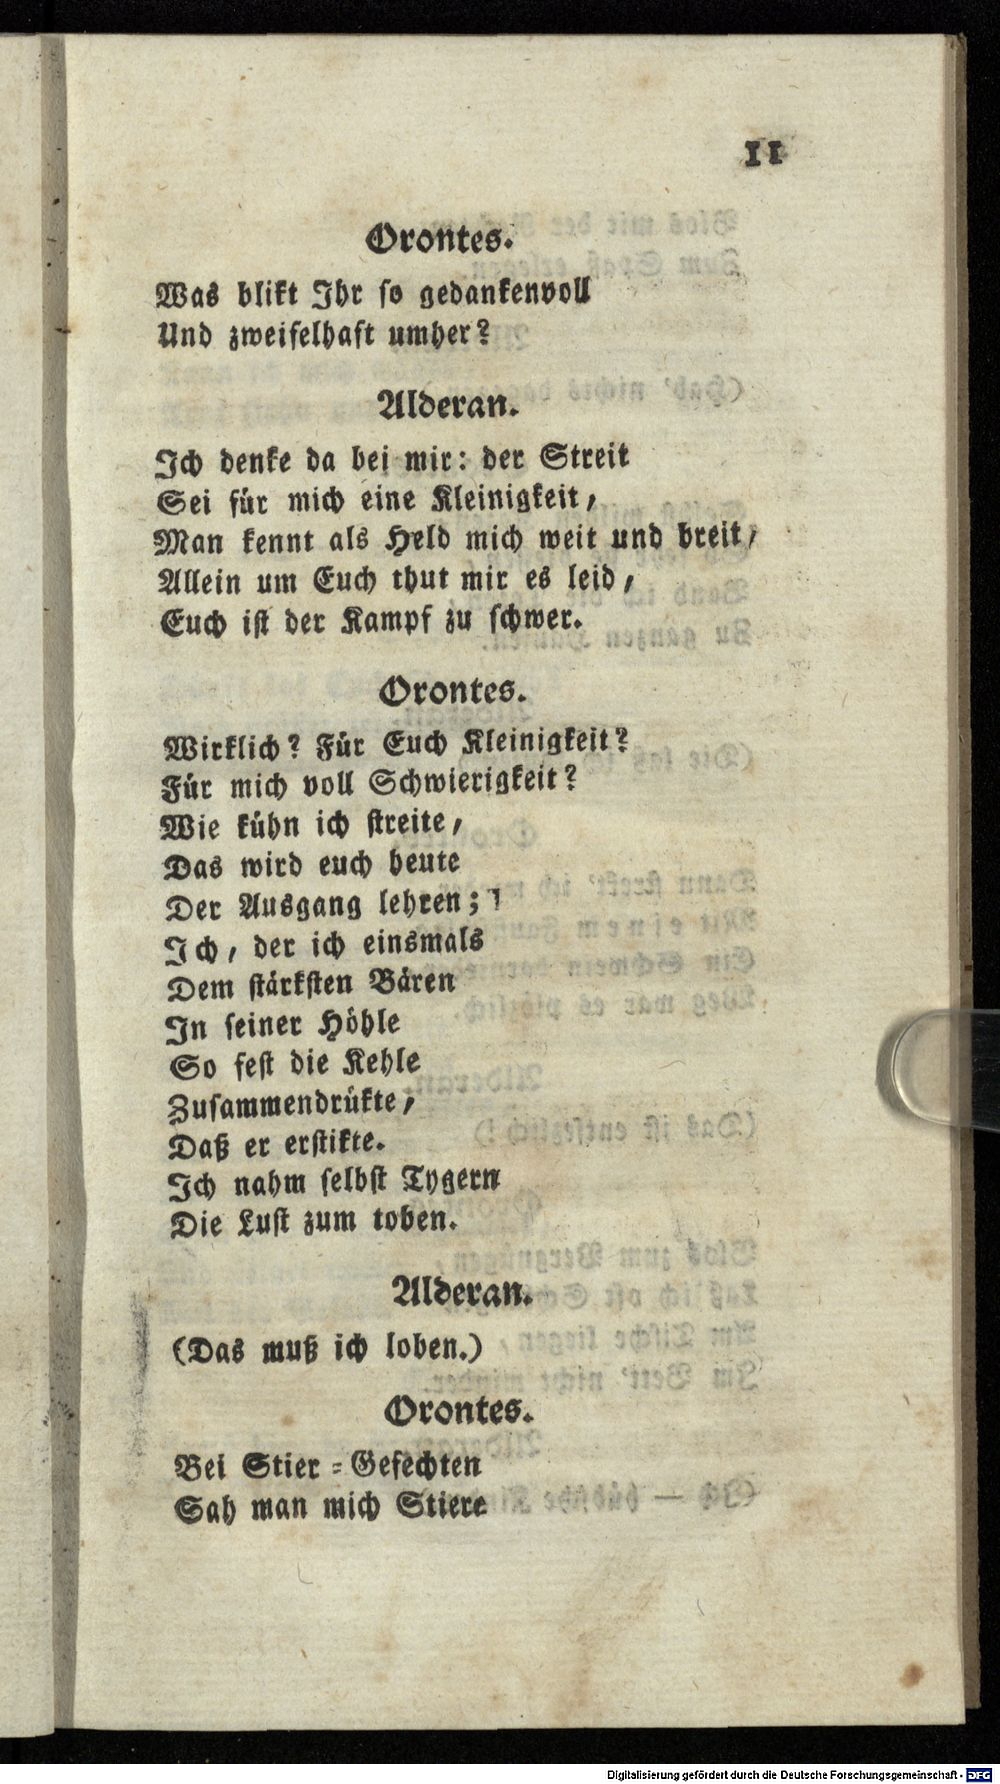 11
Orontes.
Was blikt Ihr so gedankenvoll
Und zweifelhaft umher?
Alderan.
Ich denke da bei mir: der Streit
Sei für mich eine Kleinigkeit,
Man kennt als Held mich weit und breit,
Allein um Euch thut mir es leid,
Euch ist der Kampf zu schwer.
Orontes.
Wirklich? Für Euch Kleinigkeit?
Für mich voll Schwierigkeit?
Wie kühn ich streite,
Das wird euch heute
Der Ausgang lehren;
Ich, der ich einsmals
Dem stärksten Bären
In seiner Höhle
So fest die Kehle
Zusammendrükte,
Daß er erstikte.
Ich nahm selbst Tygern
Die Lust zum toben.
Alderan.
(Das muß ich loben.)
Orontes.
Bei Stier-Gefechten
Sah man mich Stiere
Digitalisierung gefördert durch die Deutsche Forschungsgemeinschaft - DFG